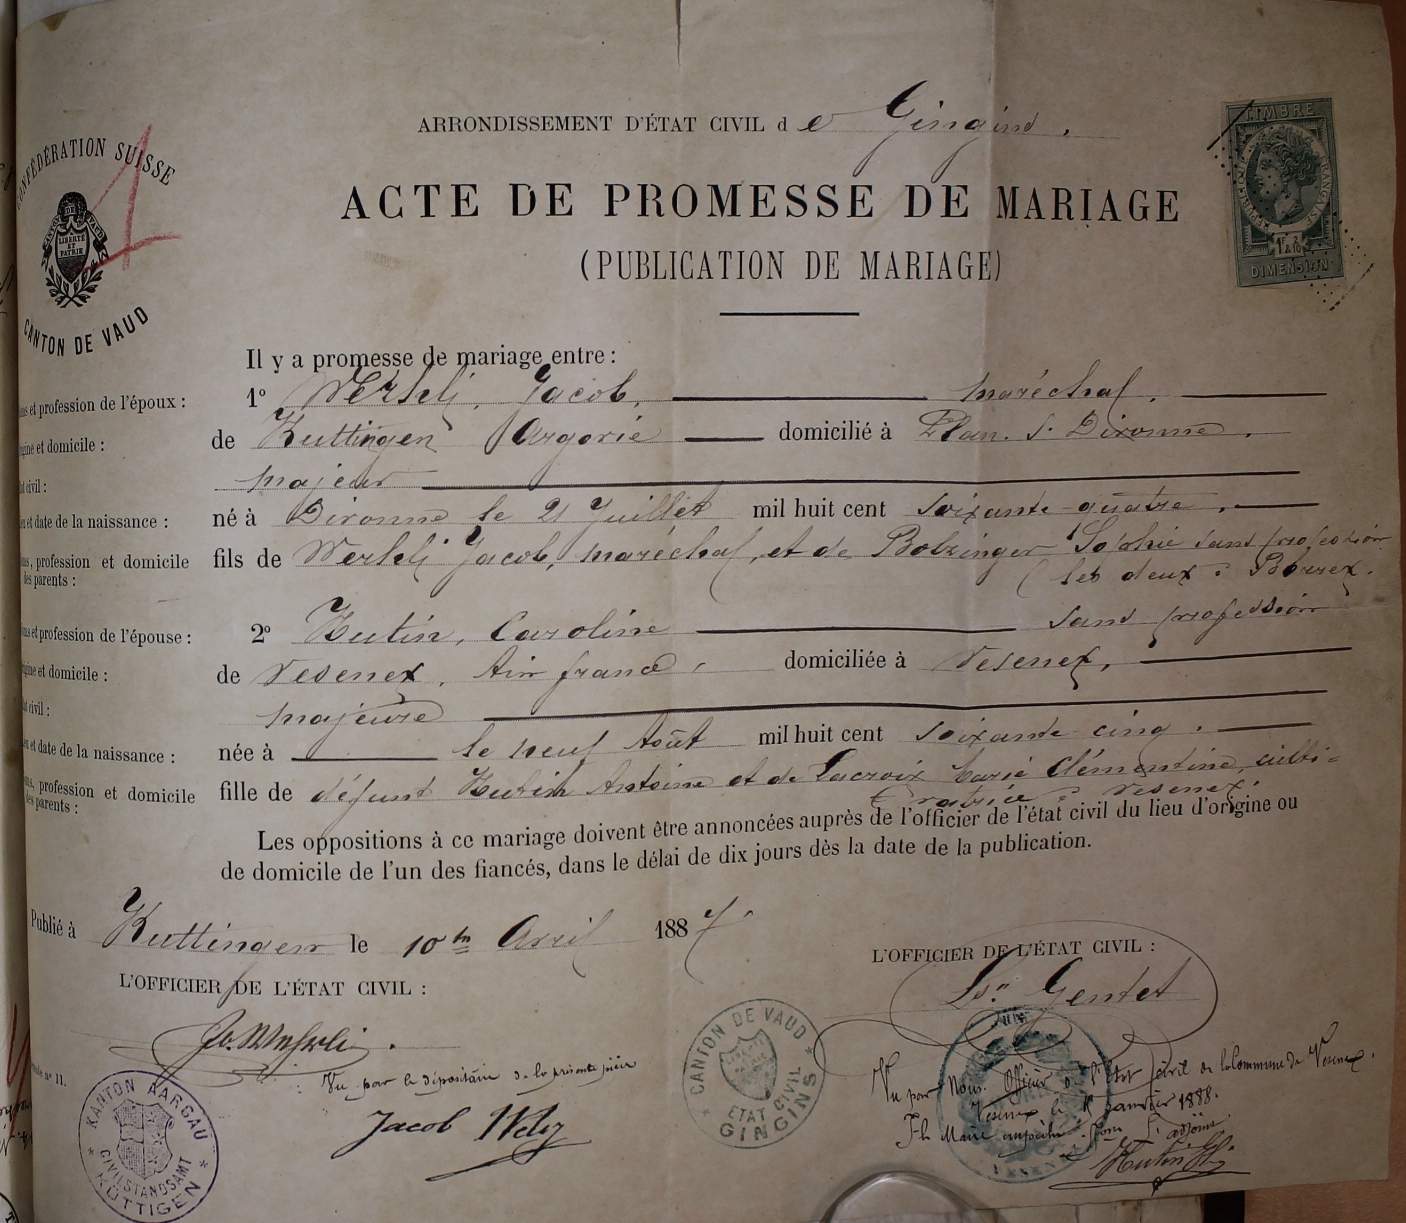 ARRONDISSEMENT D'ÉTAT CIVIL de Gingins.
CONFÉDÉRATION SUISSE
CANTON DE VAUD
LIBERTÉ ET PATRIE
TIMBRE
DIMENSION
ACTE DE PROMESSE DE MARIAGE
(PUBLICATION DE MARIAGE)
Il y a promesse de mariage entre :
et profession de l'époux : 1º Werhli, Jacob, maréchal.
et domicile : de Kuttingen Argovie domicilié à Plan. s. Divonne.
civil : majeur
et date de la naissance : né à Divonne le 21 Juillet mil huit cent soixante quatre.
profession et domicile des parents : fils de Werhli Jacob, maréchal, et de Bolzinger Sophie sans profession
les deux à
et profession de l'épouse : 2º Hutin, Caroline sans profession
et domicile : de Vesenex, Ain france, domiciliée à Vesenex,
civil : majeure
et date de la naissance : née à le neuf Août mil huit cent soixante cinq.
profession et domicile des parents : fille de défunt Hutin Antoine et de Lacroix Marie Clémentine, culti=
vatrice à Vesenex.
Les oppositions à ce mariage doivent être annoncées auprès de l'officier de l'état civil du lieu d'origine ou
de domicile de l'un des fiancés, dans le délai de dix jours dès la date de la publication.
Publié à Kuttingen le 10 tn Avril 1887.
L'OFFICIER DE L'ÉTAT CIVIL :
L'OFFICIER DE L'ÉTAT CIVIL :
Gentet
nº 11.
Vu par le dépositaire de la présente pièce
Jacob
KANTON AARGAU
CIVILSTANDSAMT
KÜTTIGEN
CANTON DE VAUD
ETAT CIVIL
GINGINS
Vu par Nous Officier de l'Etat Civil de la Commune de Vesenex.
Vesenex le Janvier 1888.
Maire l'adjoint
Hutin